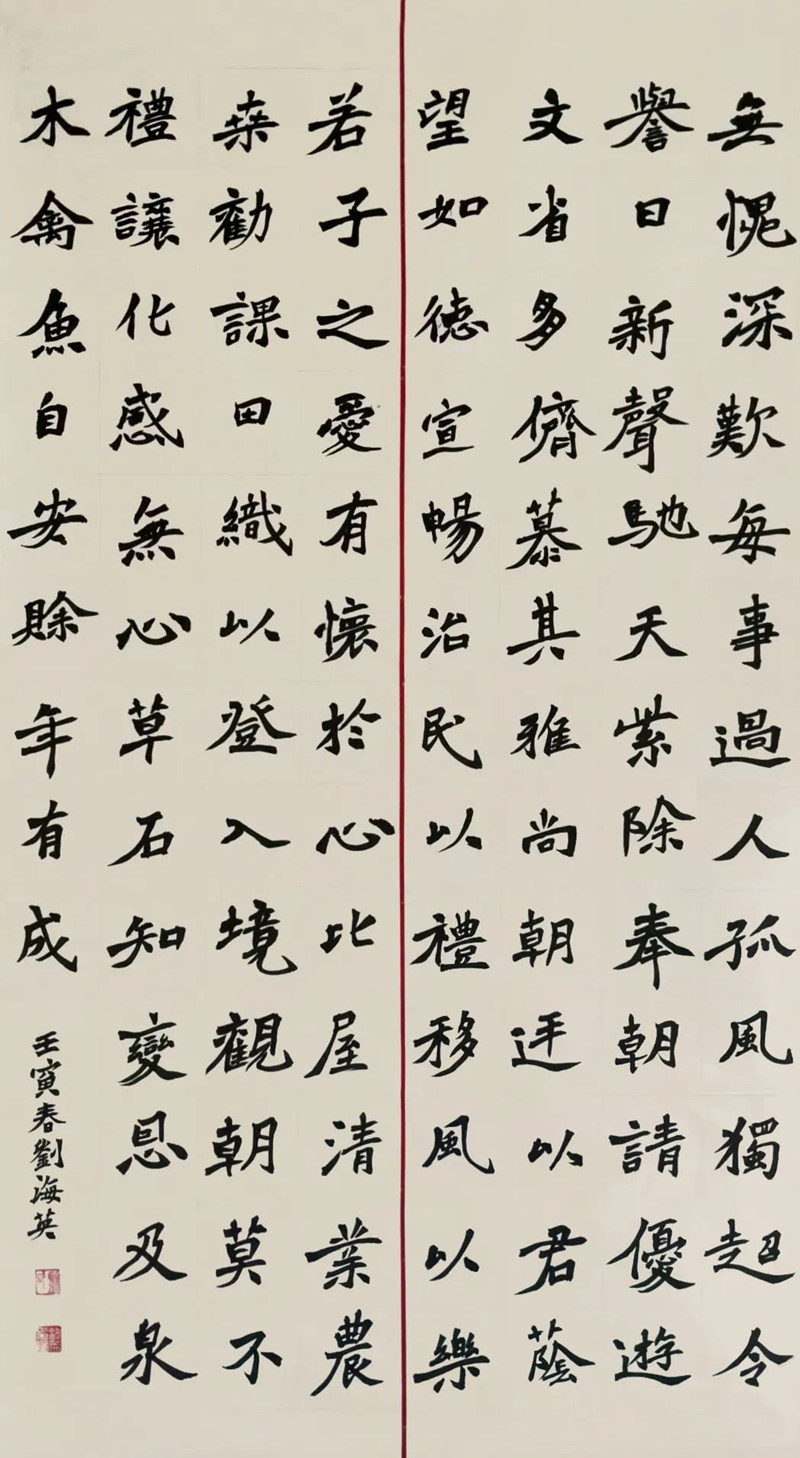 無愧深歎每事過人孤風獨超令
譽日新聲馳天紫除奉朝請優遊
文省多儕慕其雅尚朝廷以君蔭
望如德宣暢治民以禮移風以樂
若子之愛有懷於心比屋清業農
桒勸課田織以登入境觀朝莫不
禮讓化感無心草石知變恩及泉
木禽魚自安賒年有成
壬寅春劉海英